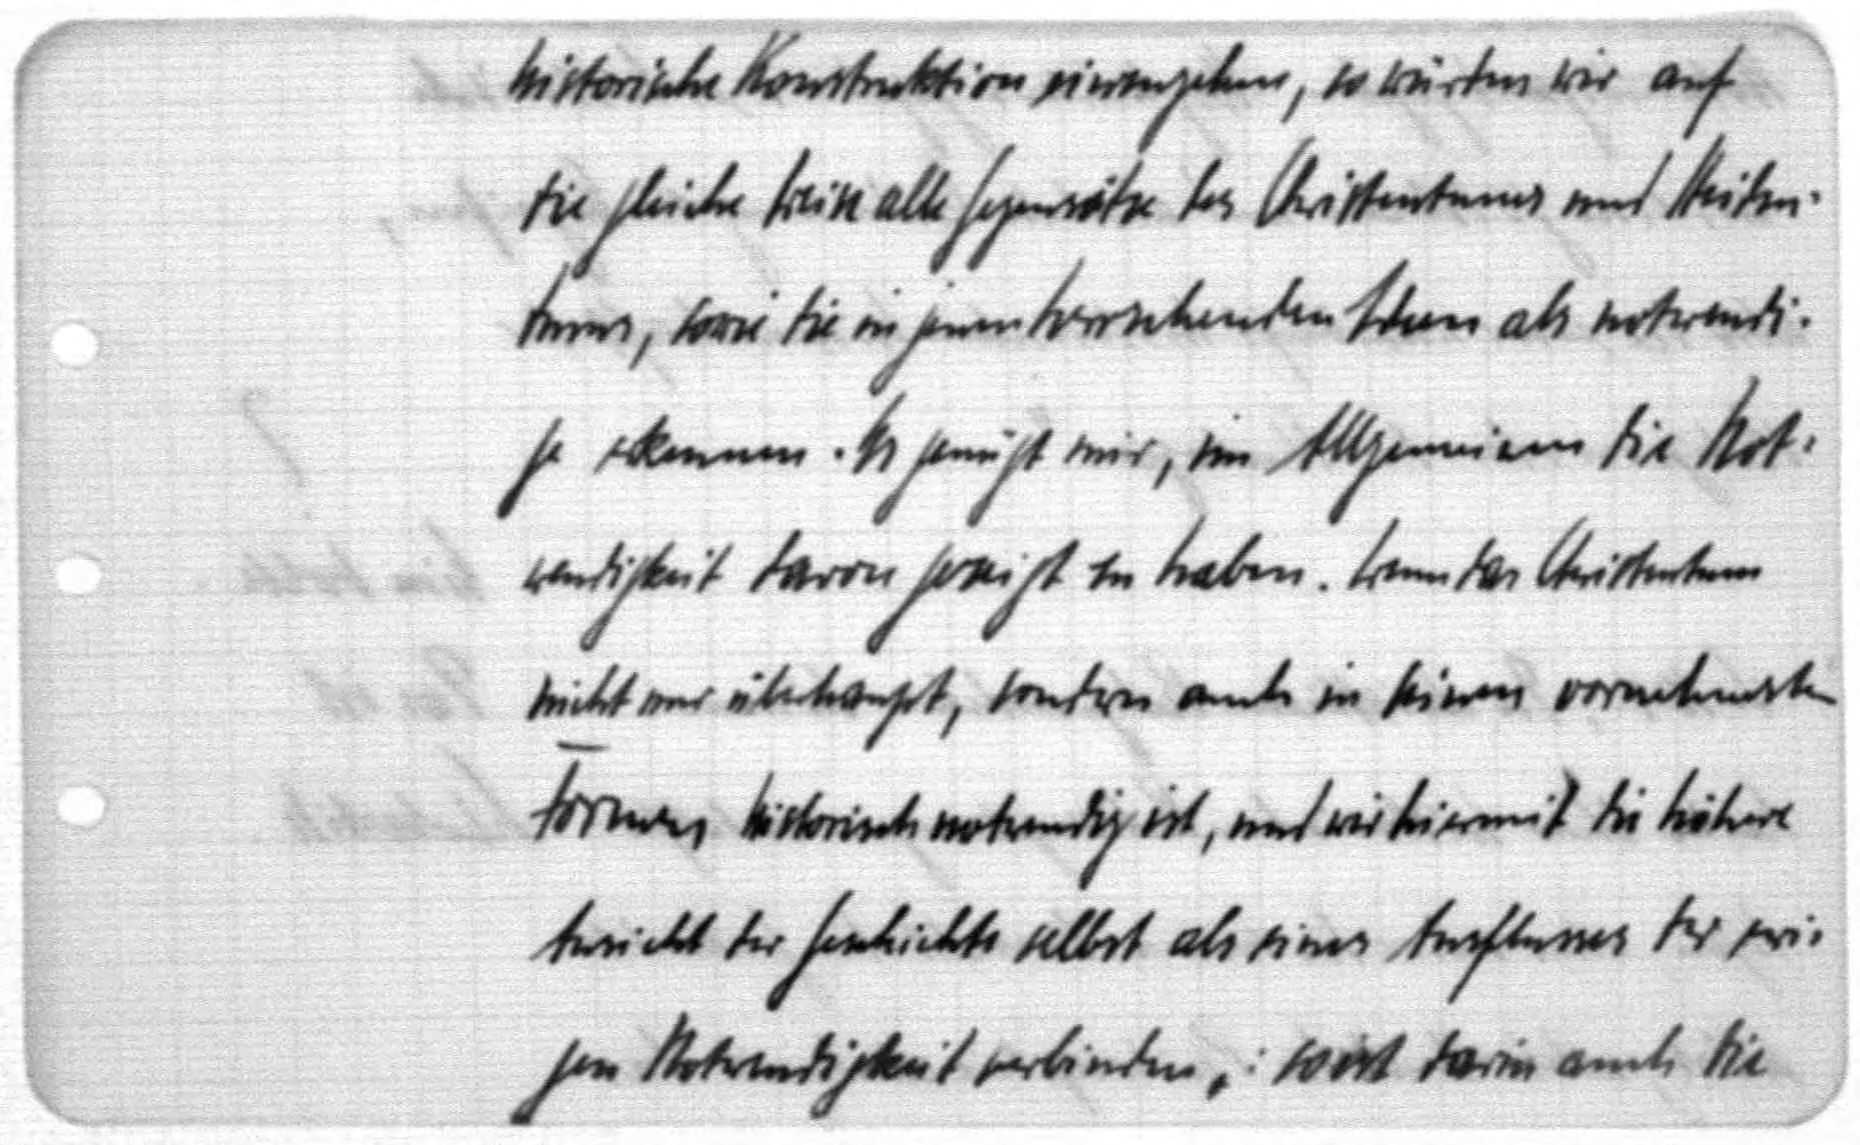 historische Konstruktion einzugehen, so würden wir auf
die gleiche Weise alle Gegensätze des Christentums und Heiden-
tums, sowie die in jenem herrschenden Ideen als notwendi-
ge erkennen. Es genügt mir, im Allgemeinen die Not-
wendigkeit davon gezeigt zu haben. Wenn das Christentum
nicht nur überhaupt, sondern auch in seinen vornehmsten
Formen historisch notwendig ist, und wir hiermit die höhere
Ansicht der Geschichte selbst als eines Ausflusses der ewi-
gen Notwendigkeit verbinden,: so ist darin auch die